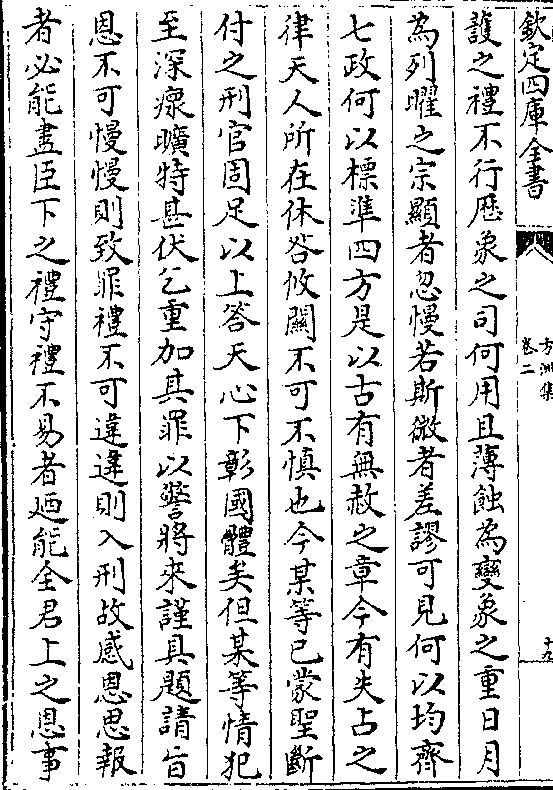 欽定四庫全書
方洲集
卷二
十九
護之禮不行厯象之司何用且薄蝕為變象之重日月
為列曜之宗顯者忽慢若斯微者差謬可見何以均齊
七政何以標準四方是以古有無赦之章今有失占之
律天人所在休咎攸關不可不慎也今某等已蒙聖斷
付之刑官固足以上答天心下彰國體矣但某等情犯
至深瘝曠特甚伏乞重加其罪以警將來謹具題請旨
恩不可慢慢則致罪禮不可違違則入刑故感恩思報
者必能盡臣下之禮守禮不易者廼能全君上之恩事